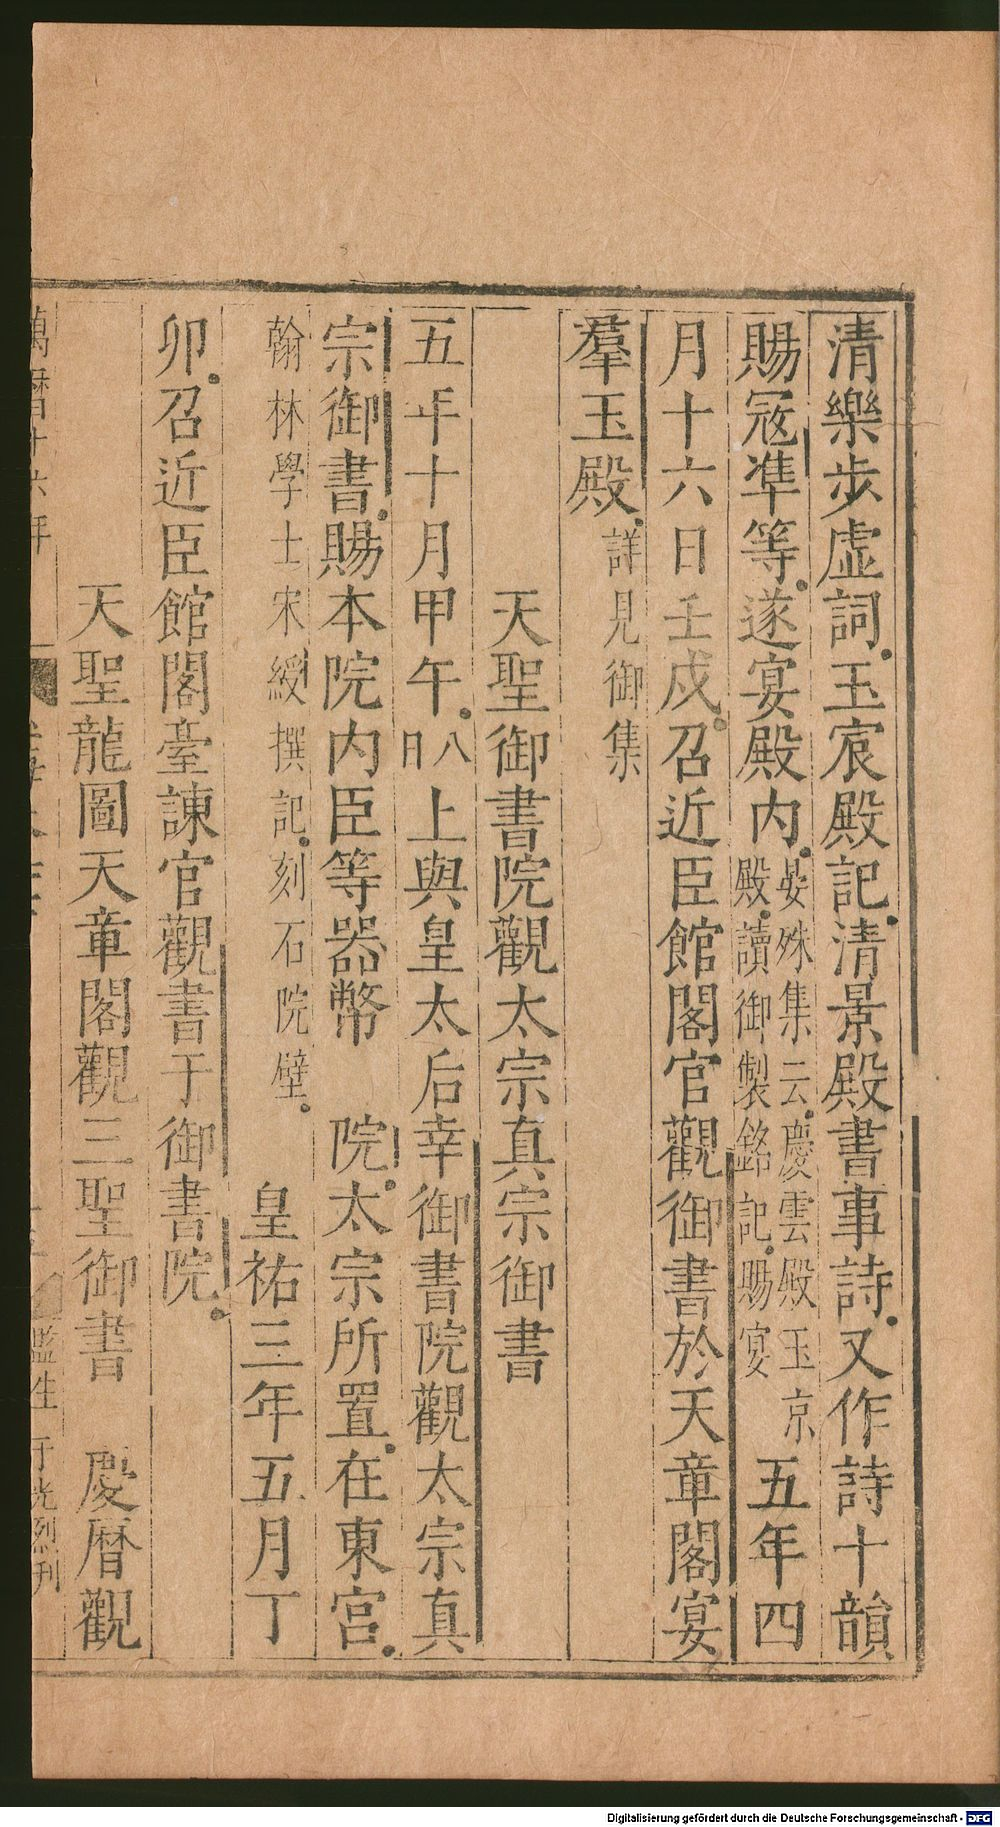 清樂步虛詞玉宸殿記清景殿書事詩又作詩十韻
賜寇準等遂宴殿內晏殊集云慶雲殿玉京殿讀御製銘記賜宴五年四
月十六日壬戌召近臣館閣官觀御書於天章閣宴
羣玉殿詳見御集
天聖御書院觀太宗真宗御書
五年十月甲午八日上與皇太后幸御書院觀太宗真
宗御書賜本院内臣等器幣 院太宗所置在東宮
翰林學士宋綬撰記刻石院壁 皇祐三年五月丁
卯召近臣館閣臺諫官觀書于御書院
天聖龍圖天章閣觀三聖御書 慶曆觀
萬曆十六年 監生于光烈刊
Digitalisierung gefördert durch die Deutsche Forschungsgemeinschaft - DFG